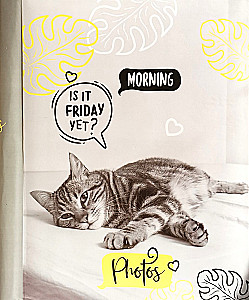 MORNING
IS IT
FRIDAY
YET?
Photos